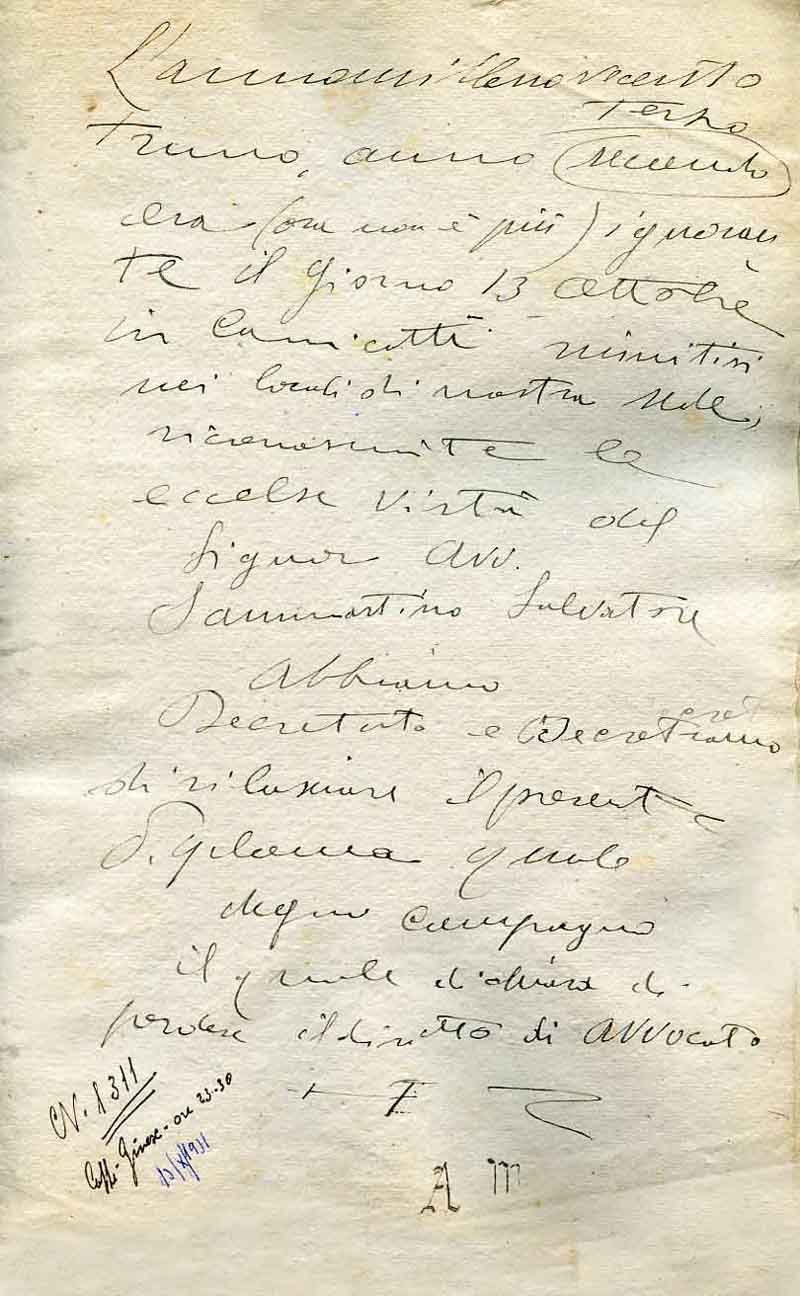 L'annomillenovecento
Terzo
Truno, anno secondo
era (ora non è più) ignoran
te il giorno 13 Ottobre
in Canicattì riunitisi
nei locali di nostra sede,
riconosciute le
eccelse virtù del
Signor Avv.
Sammartino Salvatore
Abbiamo
Decretato e Decretiamo
di rilasciare il presente
Diploma quale
degno compagno
il quale dichiara di
perdere il diritto di AVVOCATO
N. 1311
Caffè - ore 23-30
13/X/1931
A m